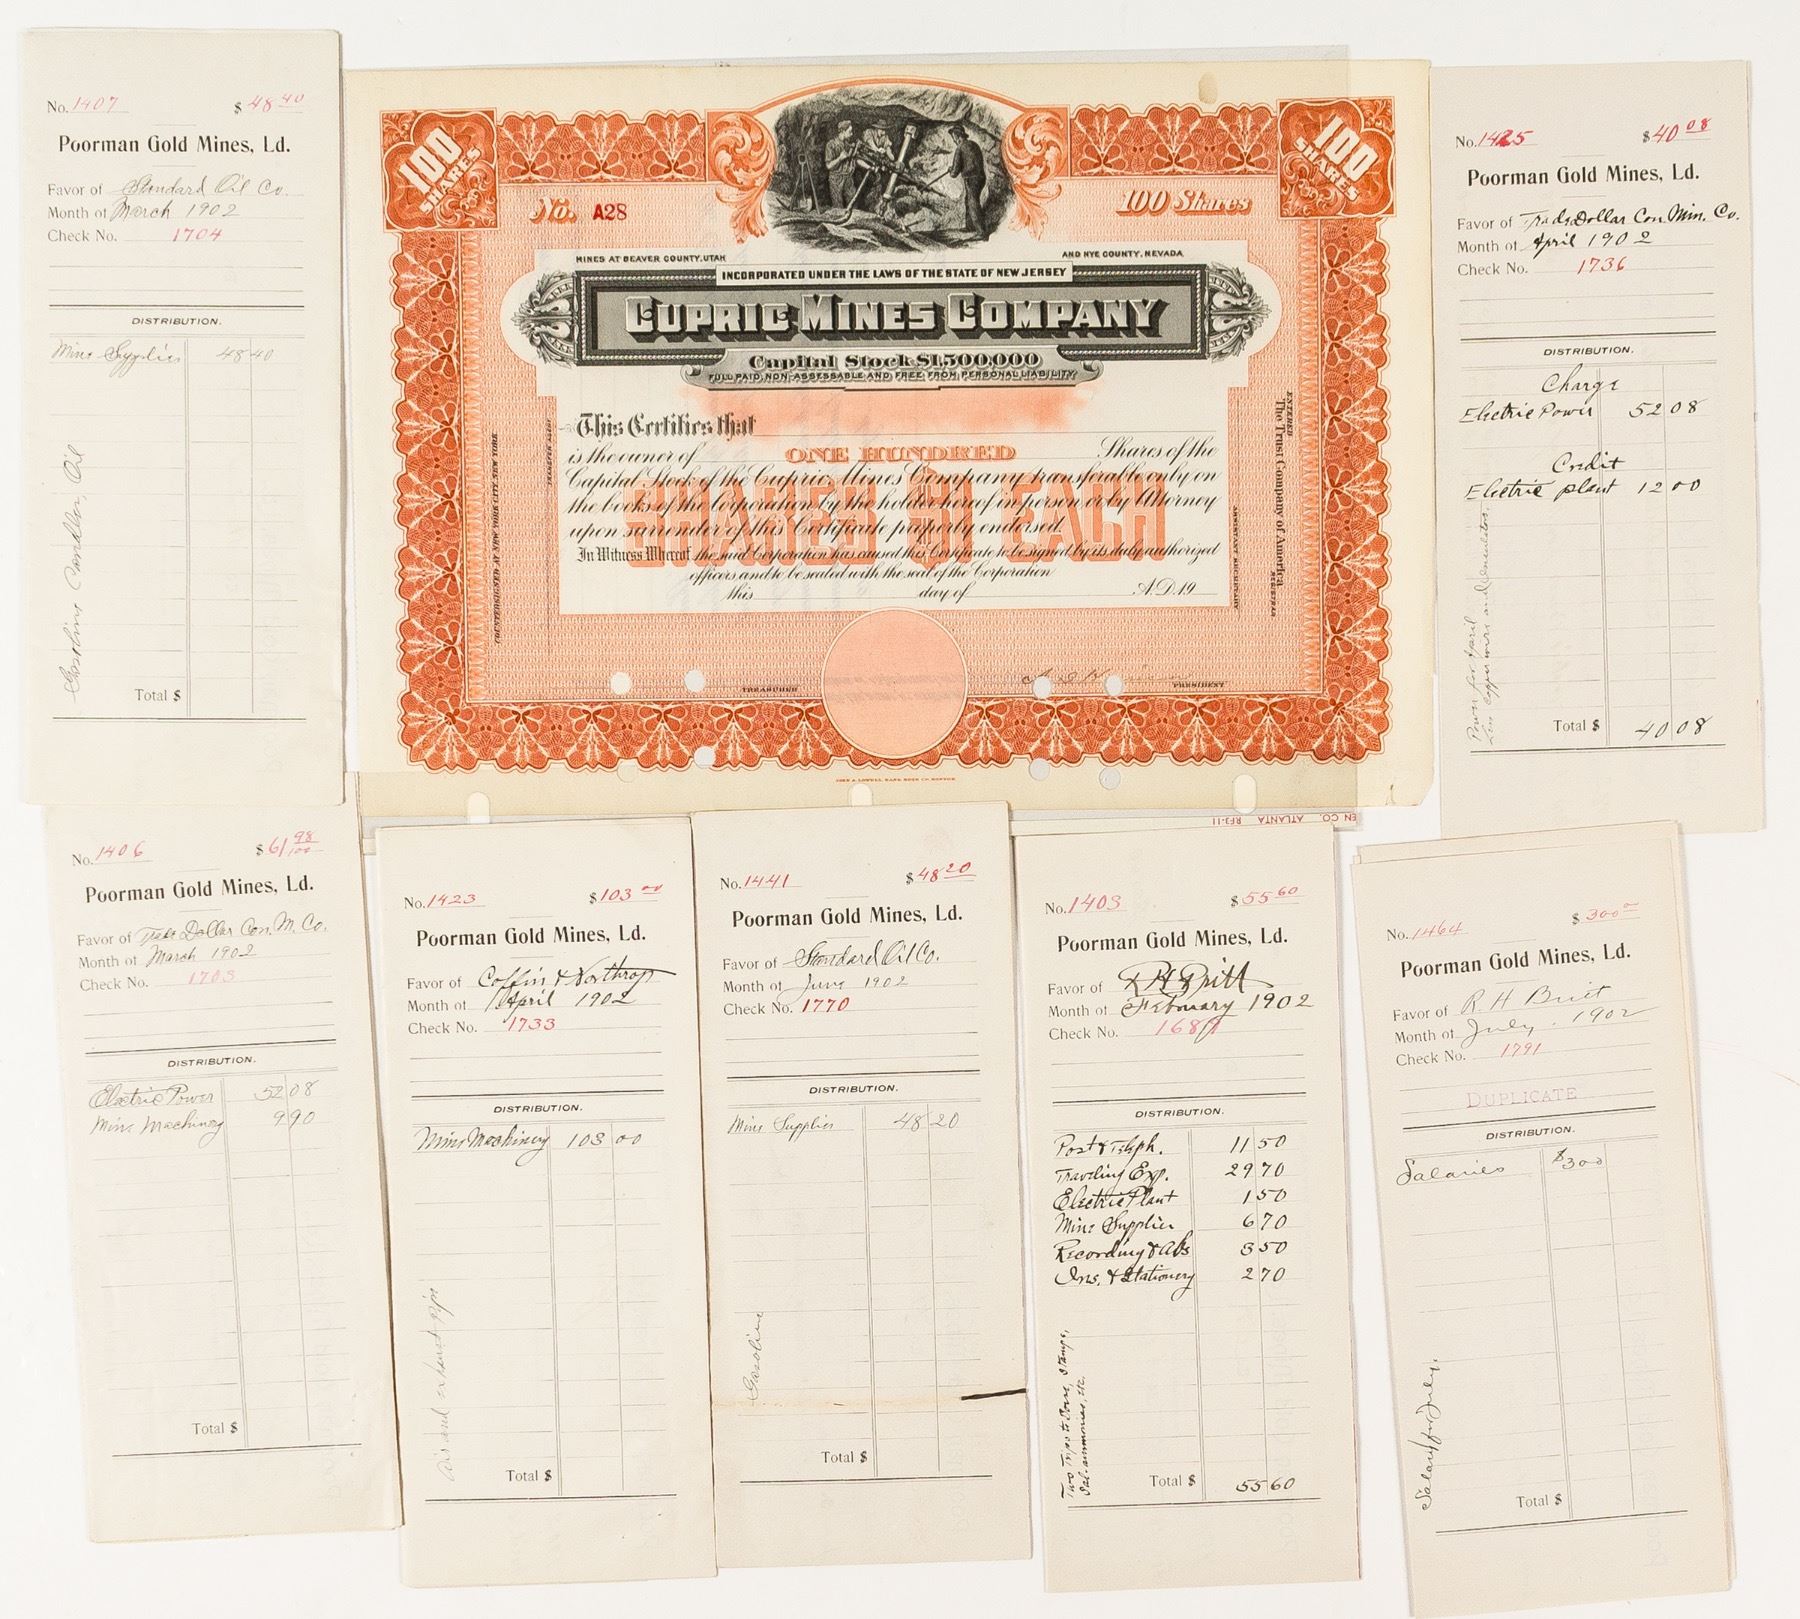 No. 1407 $ 48 40
Poorman Gold Mines, Ld.
Favor of Standard Oil Co.
Month of March 1902
Check No. 1704
DISTRIBUTION.
Mine Supplies 48 40
Gasoline Candles, Oil
Total $
100 SHARES
100 SHARES
No. A28
100 Shares
MINES AT BEAVER COUNTY, UTAH
AND NYE COUNTY, NEVADA
INCORPORATED UNDER THE LAWS OF THE STATE OF NEW JERSEY
CUPRIC MINES COMPANY
Capital Stock $1,500,000
FULL PAID, NON-ASSESSABLE AND FREE FROM PERSONAL LIABILITY
This Certifies that
is the owner of ONE HUNDRED Shares of the
Capital Stock of the Cupric Mines Company transferable only on
the books of the Corporation by the holder hereof in person or by Attorney
upon surrender of this Certificate properly endorsed.
In Witness Whereof the said Corporation has caused this Certificate to be signed by its duly authorized
officers and to be sealed with the seal of the Corporation
this day of A.D. 19
COUNTERSIGNED AT NEW YORK CITY, NEW YORK
TRANSFER AGENT
ENTERED
The Trust Company of America
REGISTRAR
ASSISTANT SECRETARY
TREASURER
PRESIDENT
JOHN A. LOWELL BANK NOTE CO. BOSTON
EN CO. ATLANTA RF3-11
No. 1425 $ 40 08
Poorman Gold Mines, Ld.
Favor of Trade Dollar Con. Min. Co.
Month of April 1902
Check No. 1736
DISTRIBUTION.
Charge
Electric Power 52 08
Credit
Electric plant 12 00
Power for April
Less Copper wire and Insulators.
Total $ 40 08
No. 1406 $ 61 98/100
Poorman Gold Mines, Ld.
Favor of Trade Dollar Con. M. Co.
Month of March 1902
Check No. 1703
DISTRIBUTION.
Electric Power 52 08
Mine Machinery 9 90
Total $
No. 1423 $ 103 00
Poorman Gold Mines, Ld.
Favor of Coffin & Northrop
Month of April 1902
Check No. 1733
DISTRIBUTION.
Mine Machinery 103 00
Air and exhaust Pipe
Total $
No. 1441 $ 48 20
Poorman Gold Mines, Ld.
Favor of Standard Oil Co.
Month of June 1902
Check No. 1770
DISTRIBUTION.
Mine Supplies 48 20
Gasoline
Total $
No. 1403 $ 55 60
Poorman Gold Mines, Ld.
Favor of R H Britt
Month of February 1902
Check No.
DISTRIBUTION.
Post & Teleph. 11 50
Traveling Exp. 29 70
Electric Plant 1 50
Mine Supplies 6 70
Recording & Abs 3 50
Ins. & Stationery 2 70
Two Trips to Stamps,
Sal. ammoniac, etc.
Total $ 55 60
No. 1464 $ 300 00
Poorman Gold Mines, Ld.
Favor of R. H Britt
Month of July. 1902
Check No. 1791
DUPLICATE
DISTRIBUTION.
Salaries $300
Salary for July.
Total $